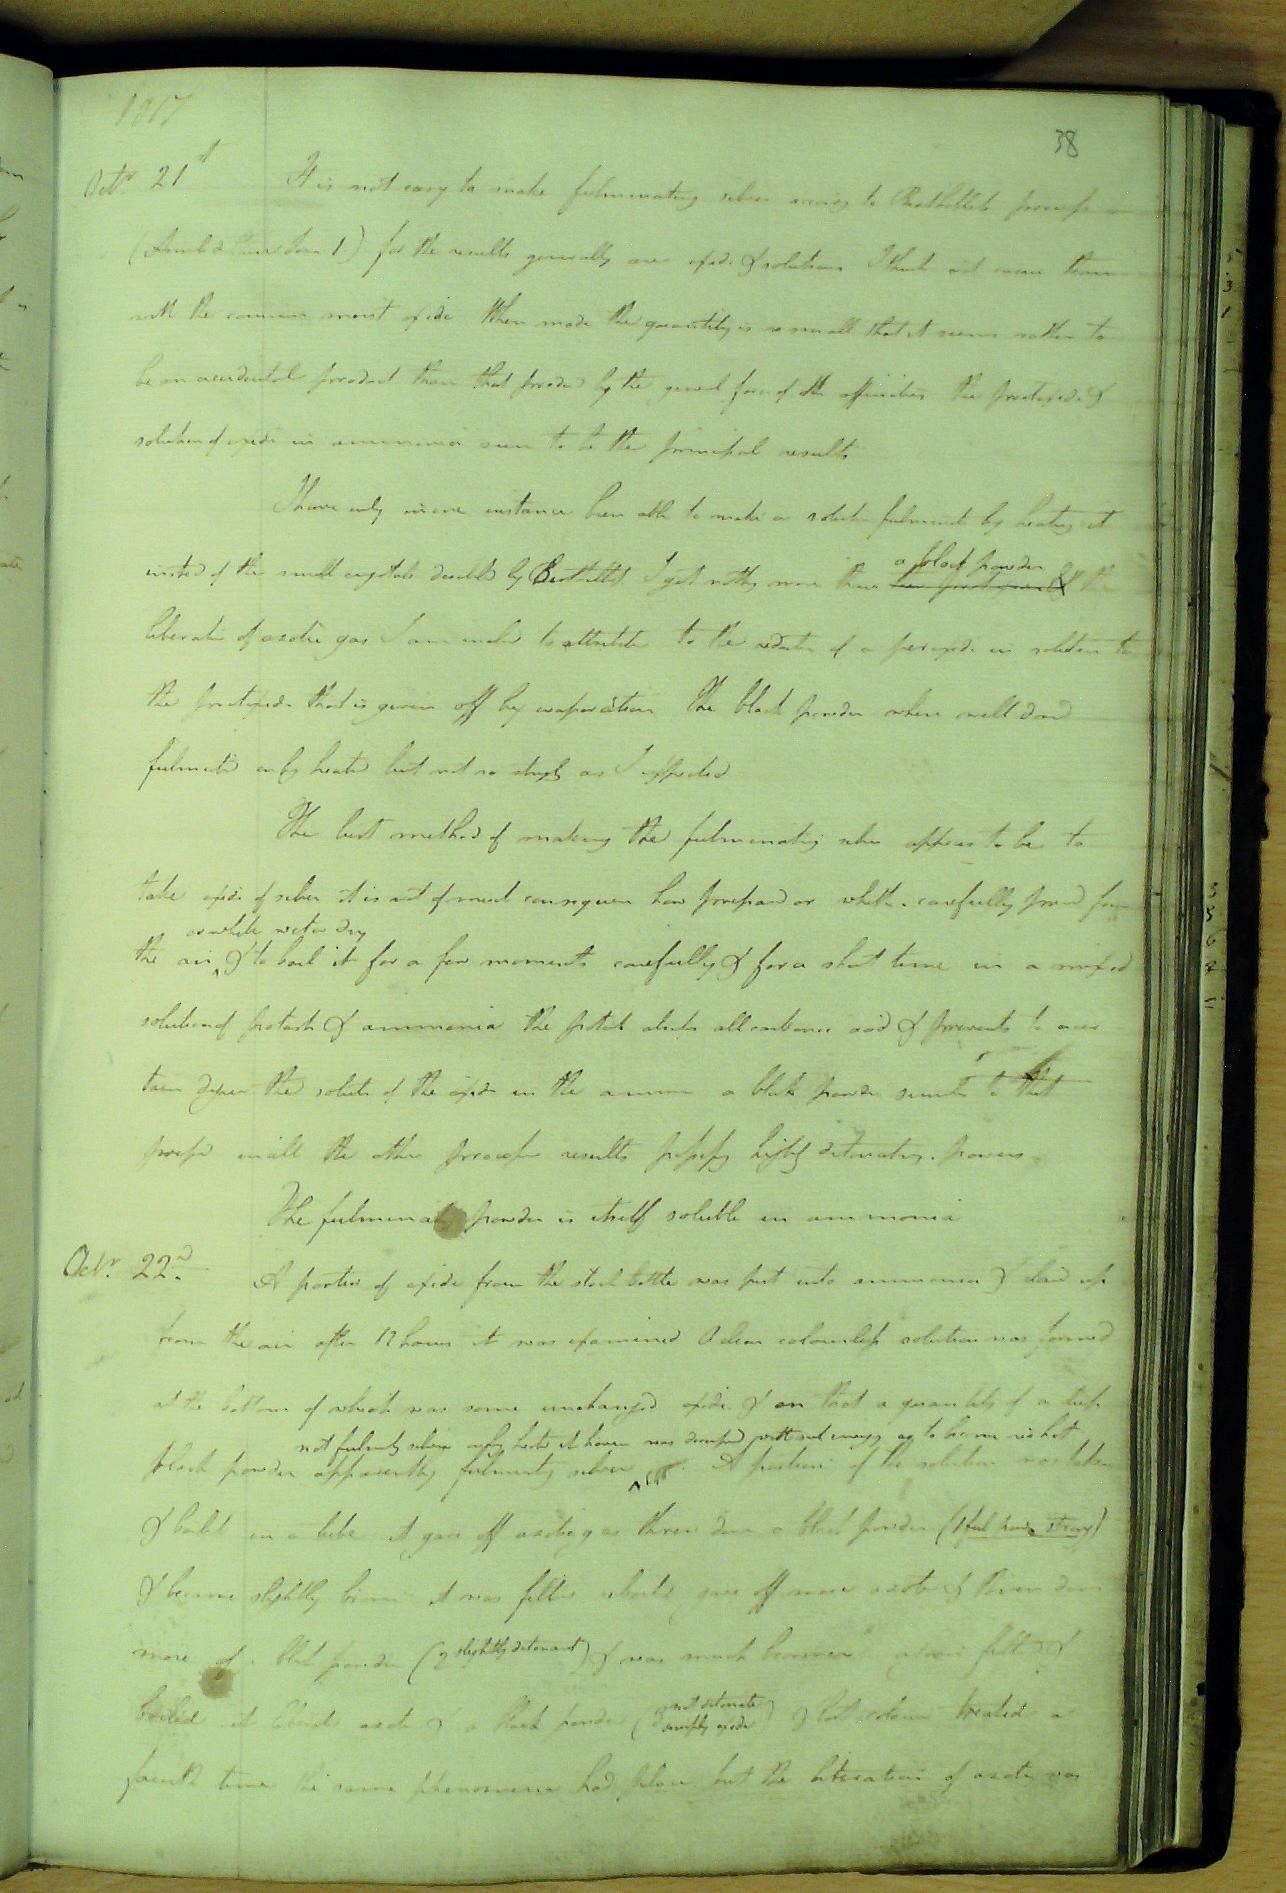 1817
38
Octr. 21st It is not easy to make fulminating silver owing to Berthollets process
for the results generally are oxide & solutions I think
with the common moist oxide When made the quantity is so small that it seems rather to
be an accidental product than that produced by the general force of the affinities the protoxide &
solution of oxide in ammonia seem to be the principal results
I have only in one instance been able to make a solution fulminate by heating it
instead of the small crystals described by Berthollet I get nothing more than a black powder & the
liberation of azotic gas I am inclined to attribute to the reduction of a peroxide in solution to
the protoxide that is given off by evaporation The black powder when well dried
fulminated on being heated but not so strongly as I expected
The best method of making the fulminating silver appears to be to
take oxide of silver it is not of much consequence how prepared or whether carefully preserved from
the air or whether wet or dry & to boil it for a few moments carefully & for a short time in a mixed
solution of potash & ammonia the potash abstracts all carbonic acid & prevents to a cer
tain degree the solution of the oxide in the ammonia a black powder similar to that
produced in all the other processes results possessing highly detonating powers
The fulminating powder is itself soluble in ammonia
Octr. 22nd. A portion of oxide from the stock bottle was put into ammonia & closed up
from the air after 12 hours it was examined A clear colourless solution was formed
at the bottom of which was some unchanged oxide & on that a quantity of a deep
not fulminating silver on being heated it however was decomposed with such energy as to become red hot
black powder apparently fulminating silver. A portion of the solution was taken
& boiled in a tube it gave off azotic gas threw down a black powder (1 ful powder strong)
& became slightly brown it was filtered reboiled gave off more azote & threw down
more of black powder (2 slightly detonant) & was much browner again filtered &
boiled it liberated azote & a black powder (3 not detonate simply oxide) & treated a
fourth time the same phenomena had place but the liberation of azote was